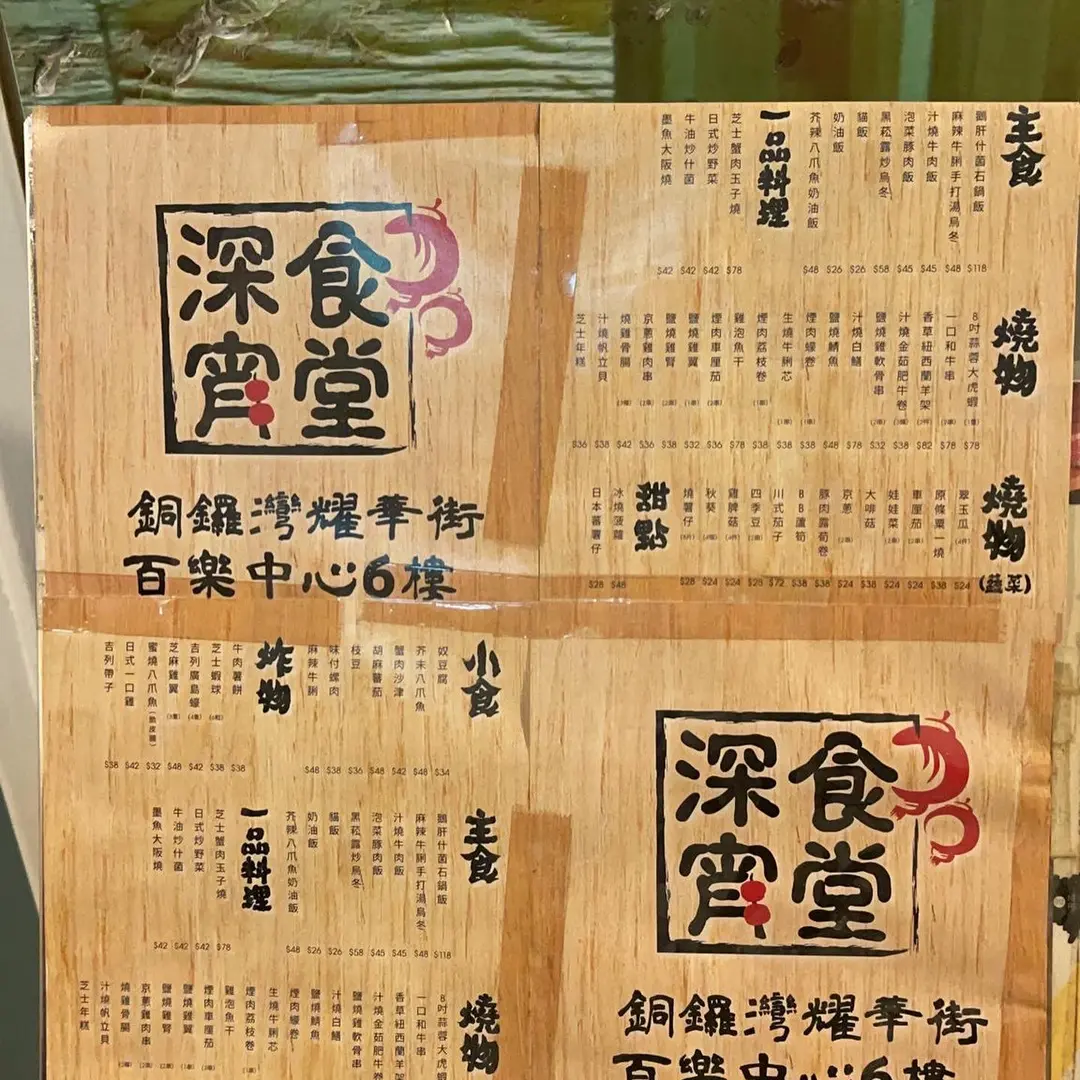 深宵食堂
銅鑼灣耀華街
百樂中心6樓
主食
鵝肝什菌石鍋飯 $118
麻辣牛脷手打湯烏冬 $48
汁燒牛肉飯 $45
泡菜豚肉飯 $45
黑菘露炒烏冬 $58
貓飯 $26
奶油飯 $26
芥辣八爪魚奶油飯 $48
一品料理
芝士蟹肉玉子燒 $78
日式炒野菜 $42
牛油炒什菌 $42
墨魚大阪燒 $42
燒物
8吋蒜蓉大虎蝦 $78
一口和牛串 $78
香草紐西蘭羊架 $82
汁燒金菇肥牛卷 $38
鹽燒雞軟骨串 $32
汁燒白鱔 $78
鹽燒鯖魚 $48
煙肉蠔卷 $38
生燒牛脷芯 $38
煙肉荔枝卷 $38
雞泡魚干 $78
煙肉車厘茄 $36
鹽燒雞翼 $32
鹽燒雞腎 $38
京蔥雞肉串 $36
燒雞骨腸 $42
汁燒帆立貝 $38
芝士年糕 $36
燒物(蔬菜)
翠玉瓜 $24
原條粟一燒 $38
車厘茄 $24
娃娃菜 $24
大啡菇 $38
京蔥 $24
豚肉露荀卷 $38
BB蘆筍 $38
川式茄子 $72
四季豆 $28
雞脾菇 $24
秋葵 $24
燒薯仔 $28
甜點
冰燒菠蘿 $48
日本蕃薯仔 $28
小食
奴豆腐 $34
芥末八爪魚 $48
蟹肉沙津 $42
胡麻蕃茄 $48
枝豆 $36
味付螺肉 $38
麻辣牛脷 $48
炸物
牛肉薯餅 $38
芝士蝦球 $38
吉列廣島蠔 $42
芝麻雞翼 $48
蜜燒八爪魚 $32
日式一口雞 $42
吉列帶子 $38
主食
鵝肝什菌石鍋飯 $118
麻辣牛脷手打湯烏冬 $48
汁燒牛肉飯 $45
泡菜豚肉飯 $45
黑菘露炒烏冬 $58
貓飯 $26
奶油飯 $26
芥辣八爪魚奶油飯 $48
一品料理
芝士蟹肉玉子燒 $78
日式炒野菜 $42
牛油炒什菌 $42
墨魚大阪燒 $42
燒物
8吋蒜蓉大虎蝦
一口和牛串
香草紐西蘭羊架
汁燒金菇肥牛
鹽燒雞軟骨串
汁燒白鱔
鹽燒鯖魚
煙肉蠔卷
生燒牛脷芯
煙肉荔枝卷
雞泡魚干
煙肉車厘茄
鹽燒雞翼
鹽燒雞腎
京蔥雞肉串
燒雞骨腸
汁燒帆立貝
芝士年糕
深宵食堂
銅鑼灣耀華街
百樂中心6樓